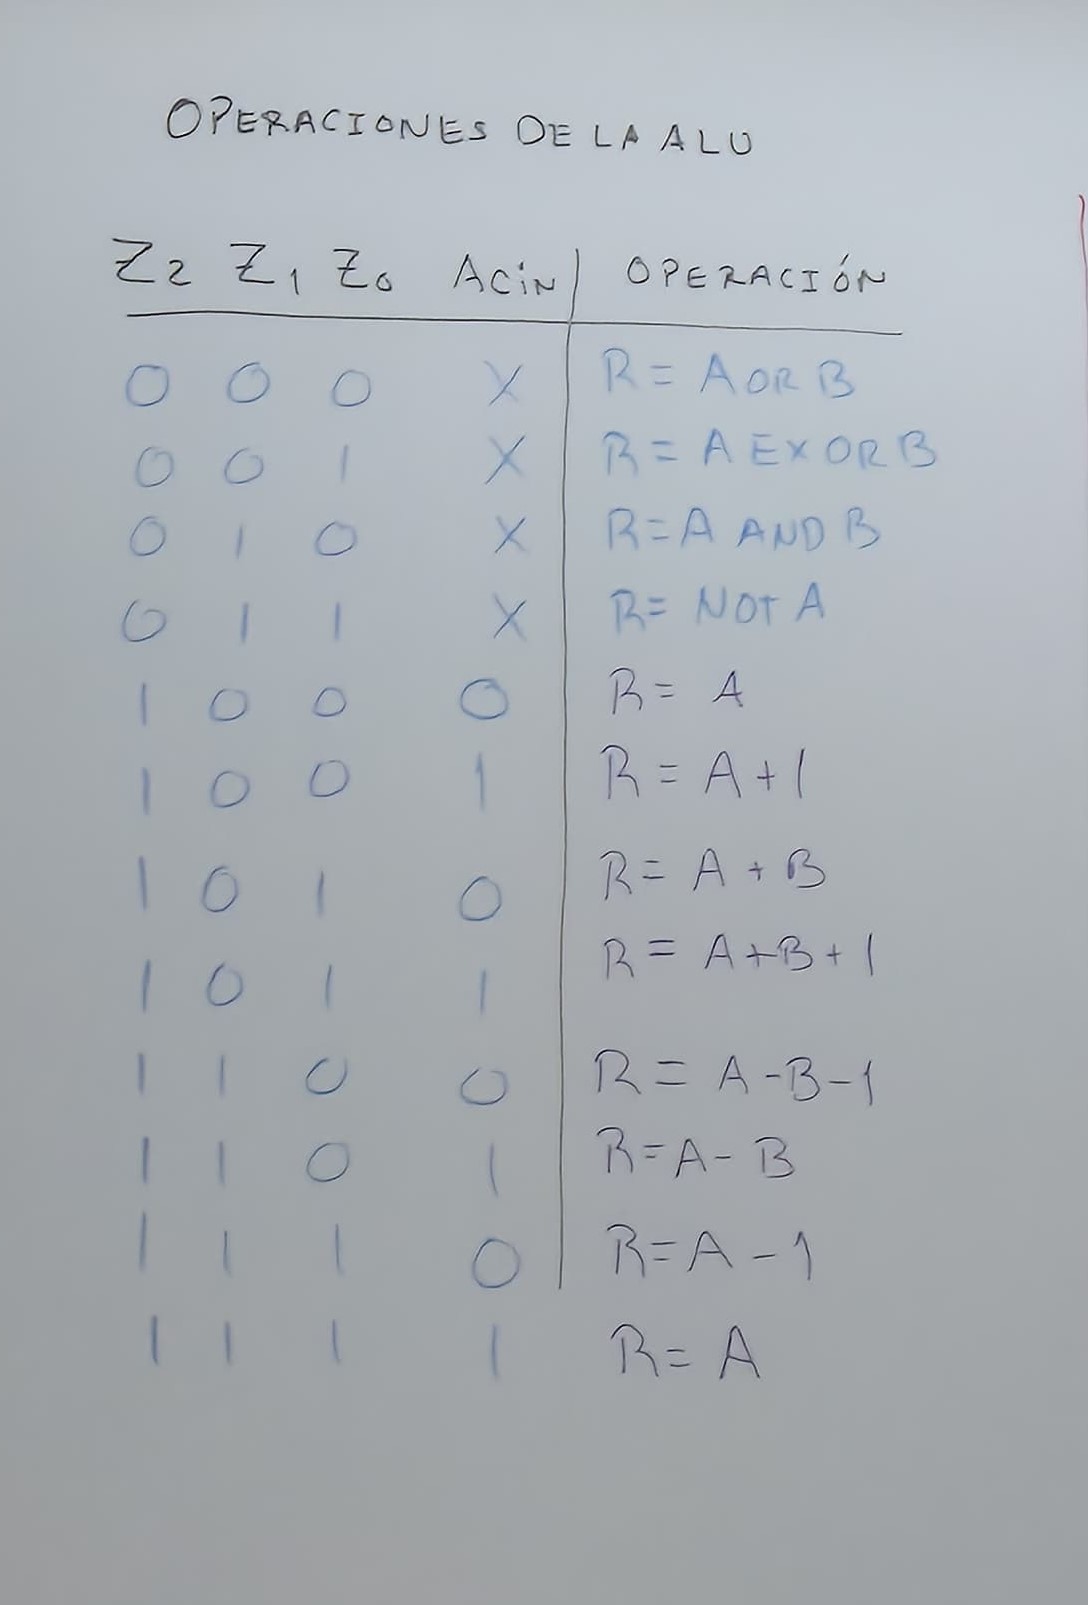 OPERACIONES DE LA ALU
Z2 Z1 Z0 ACiN OPERACIÓN
0 0 0 X R = A OR B
0 0 1 X R = A EXOR B
0 1 0 X R = A AND B
0 1 1 X R = NOT A
1 0 0 0 R = A
1 0 0 1 R = A + 1
1 0 1 0 R = A + B
1 0 1 1 R = A + B + 1
1 1 0 0 R = A - B - 1
1 1 0 1 R = A - B
1 1 1 0 R = A - 1
1 1 1 1 R = A